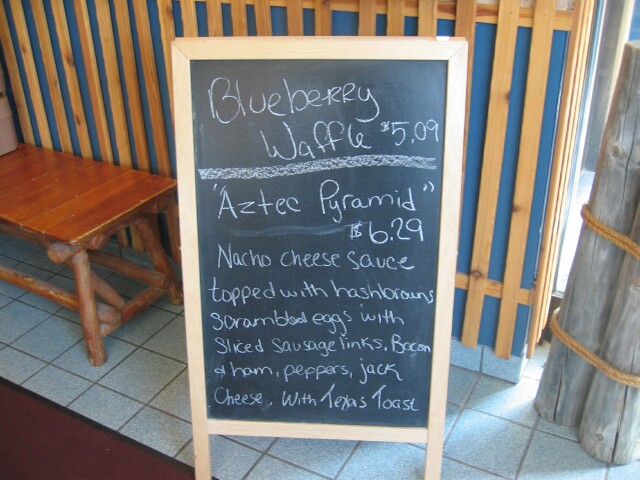 Blueberry
Waffle $5.09
"Aztec Pyramid"
$6.29
Nacho cheese sauce
topped with hashbrowns
scrambled eggs with
sliced sausage links, Bacon
& ham, peppers, jack
Cheese. With Texas Toast